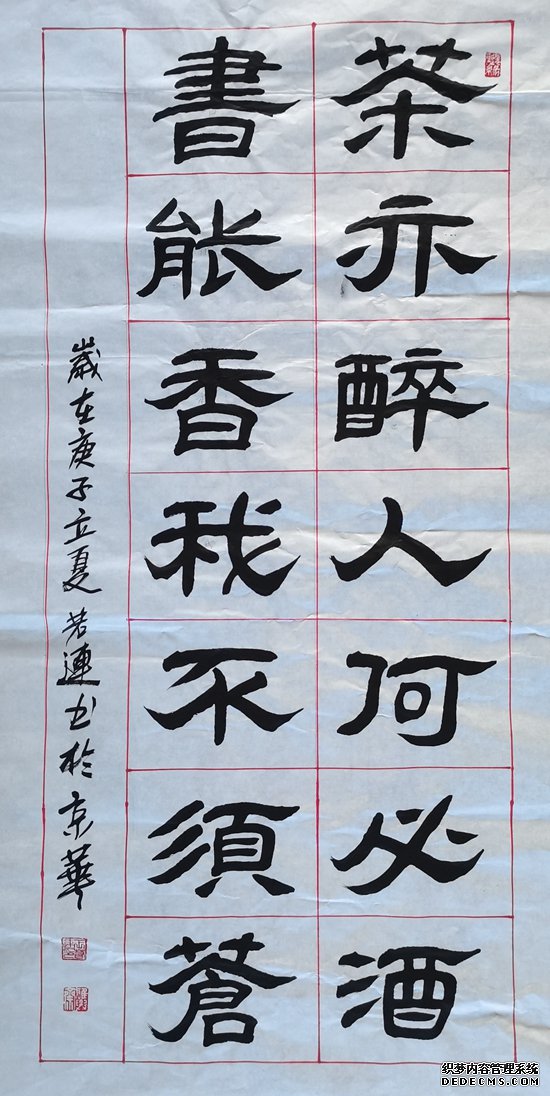 茶亦醉人何必酒
書能香我不須蒼
歲在庚子立夏若連书於京華
织梦内容管理系统
DEDECMS.COM